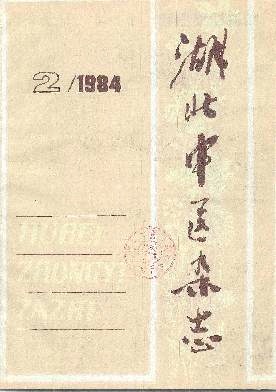 2/1984
湖北中医杂志
HUBEI
ZHONGYI
ZAZHI